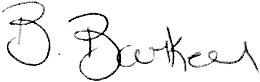 B. Barker